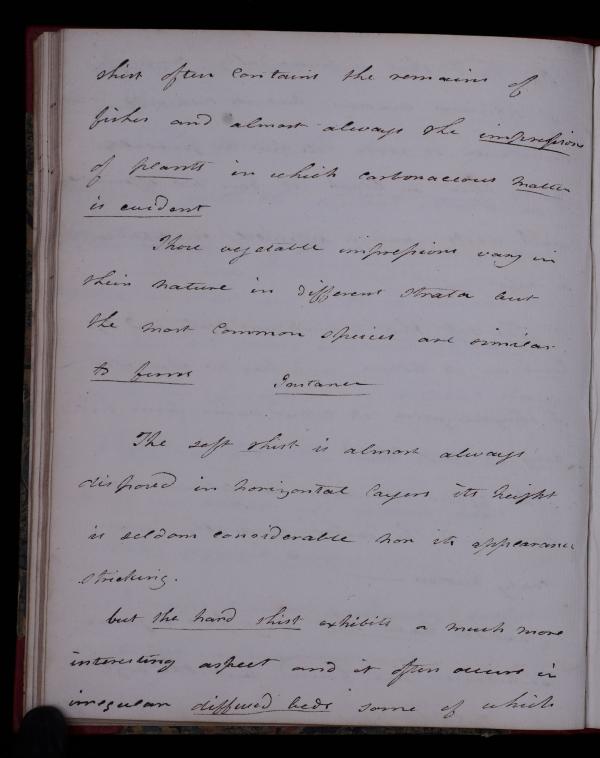 shist often contains the remains of
fishes and almost always the impressions
of plants in which carbonaceous matter
is evident
These vegetable impressions vary in
their nature in different strata but
the most common species are similar
to ferns Instance
The soft shist is almost always
disposed in horizontal layers its height
is seldom considerable nor its appearance
stricking.
but the hard shist exhibits a much more
interesting aspect and it often occurs in
irregular diffused beds some of which